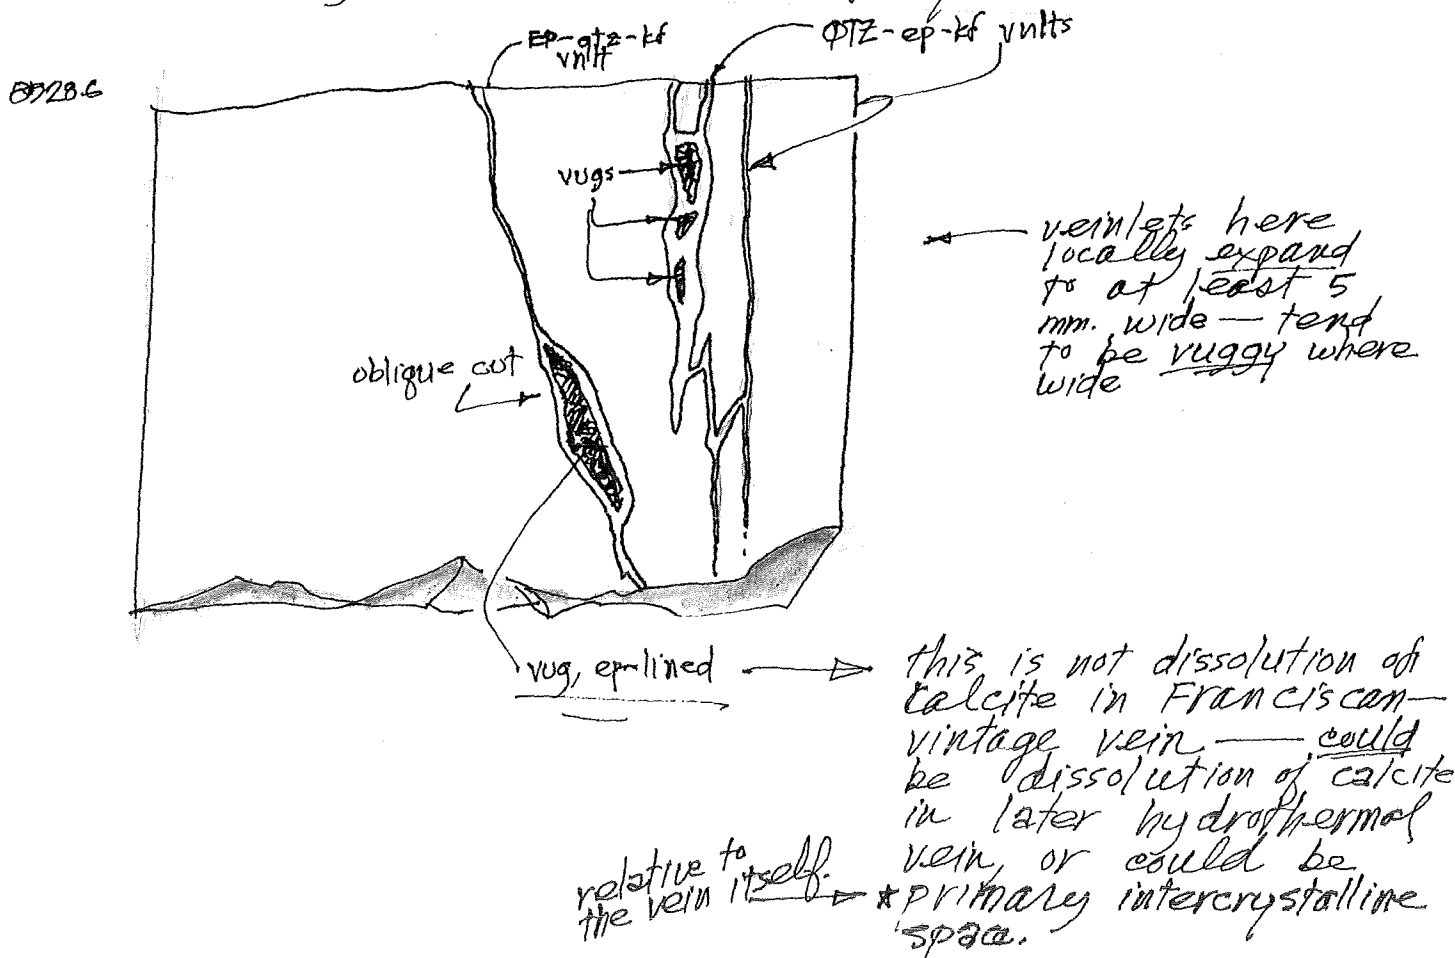 EP-qtz-kf
vnlt
QTZ-ep-kf vnlts
8928.6
vugs
veinlets here
locally expand
to at least 5
mm. wide — tend
to be vuggy where
wide
oblique cut
vug, ep-lined
this is not dissolution of
calcite in Franciscan-
vintage vein — could
be dissolution of calcite
in later hydrothermal
vein, or could be
*primary intercrystalline
space.
relative to
the vein itself.